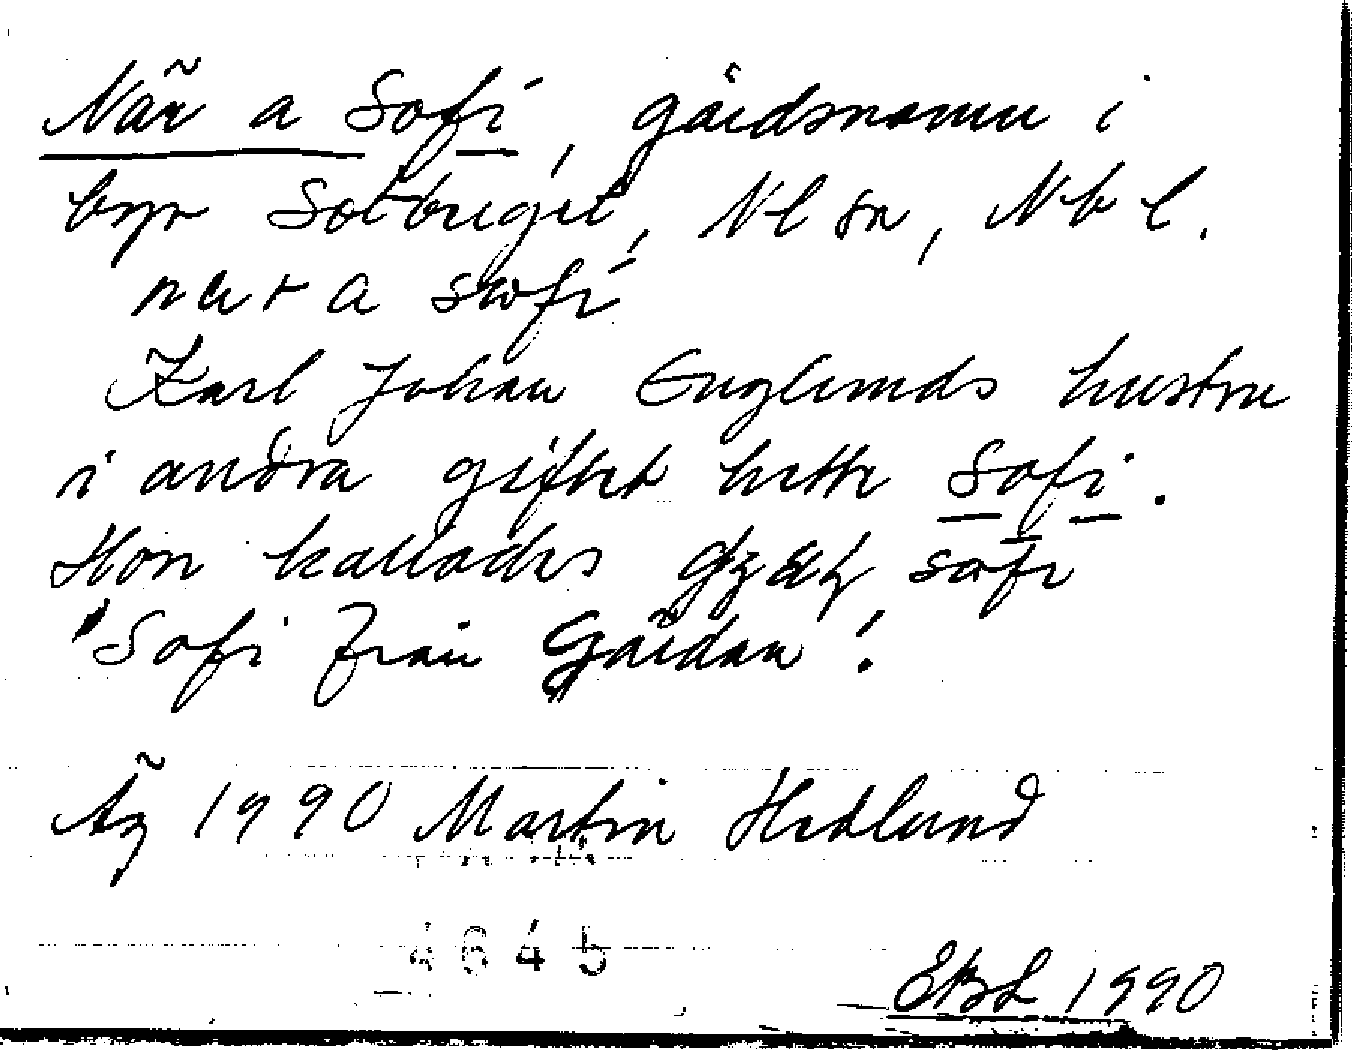 När a Sofi, gårdsnamn i
byn Sotbriget, Nl sn, Nbl.
Karl Johan Englunds hustru
i andra giftet hette Sofi.
Hon kallades
"Sofi från Gårdan".
Åg 1990 Martin Hedlund
4645
EBL 1990